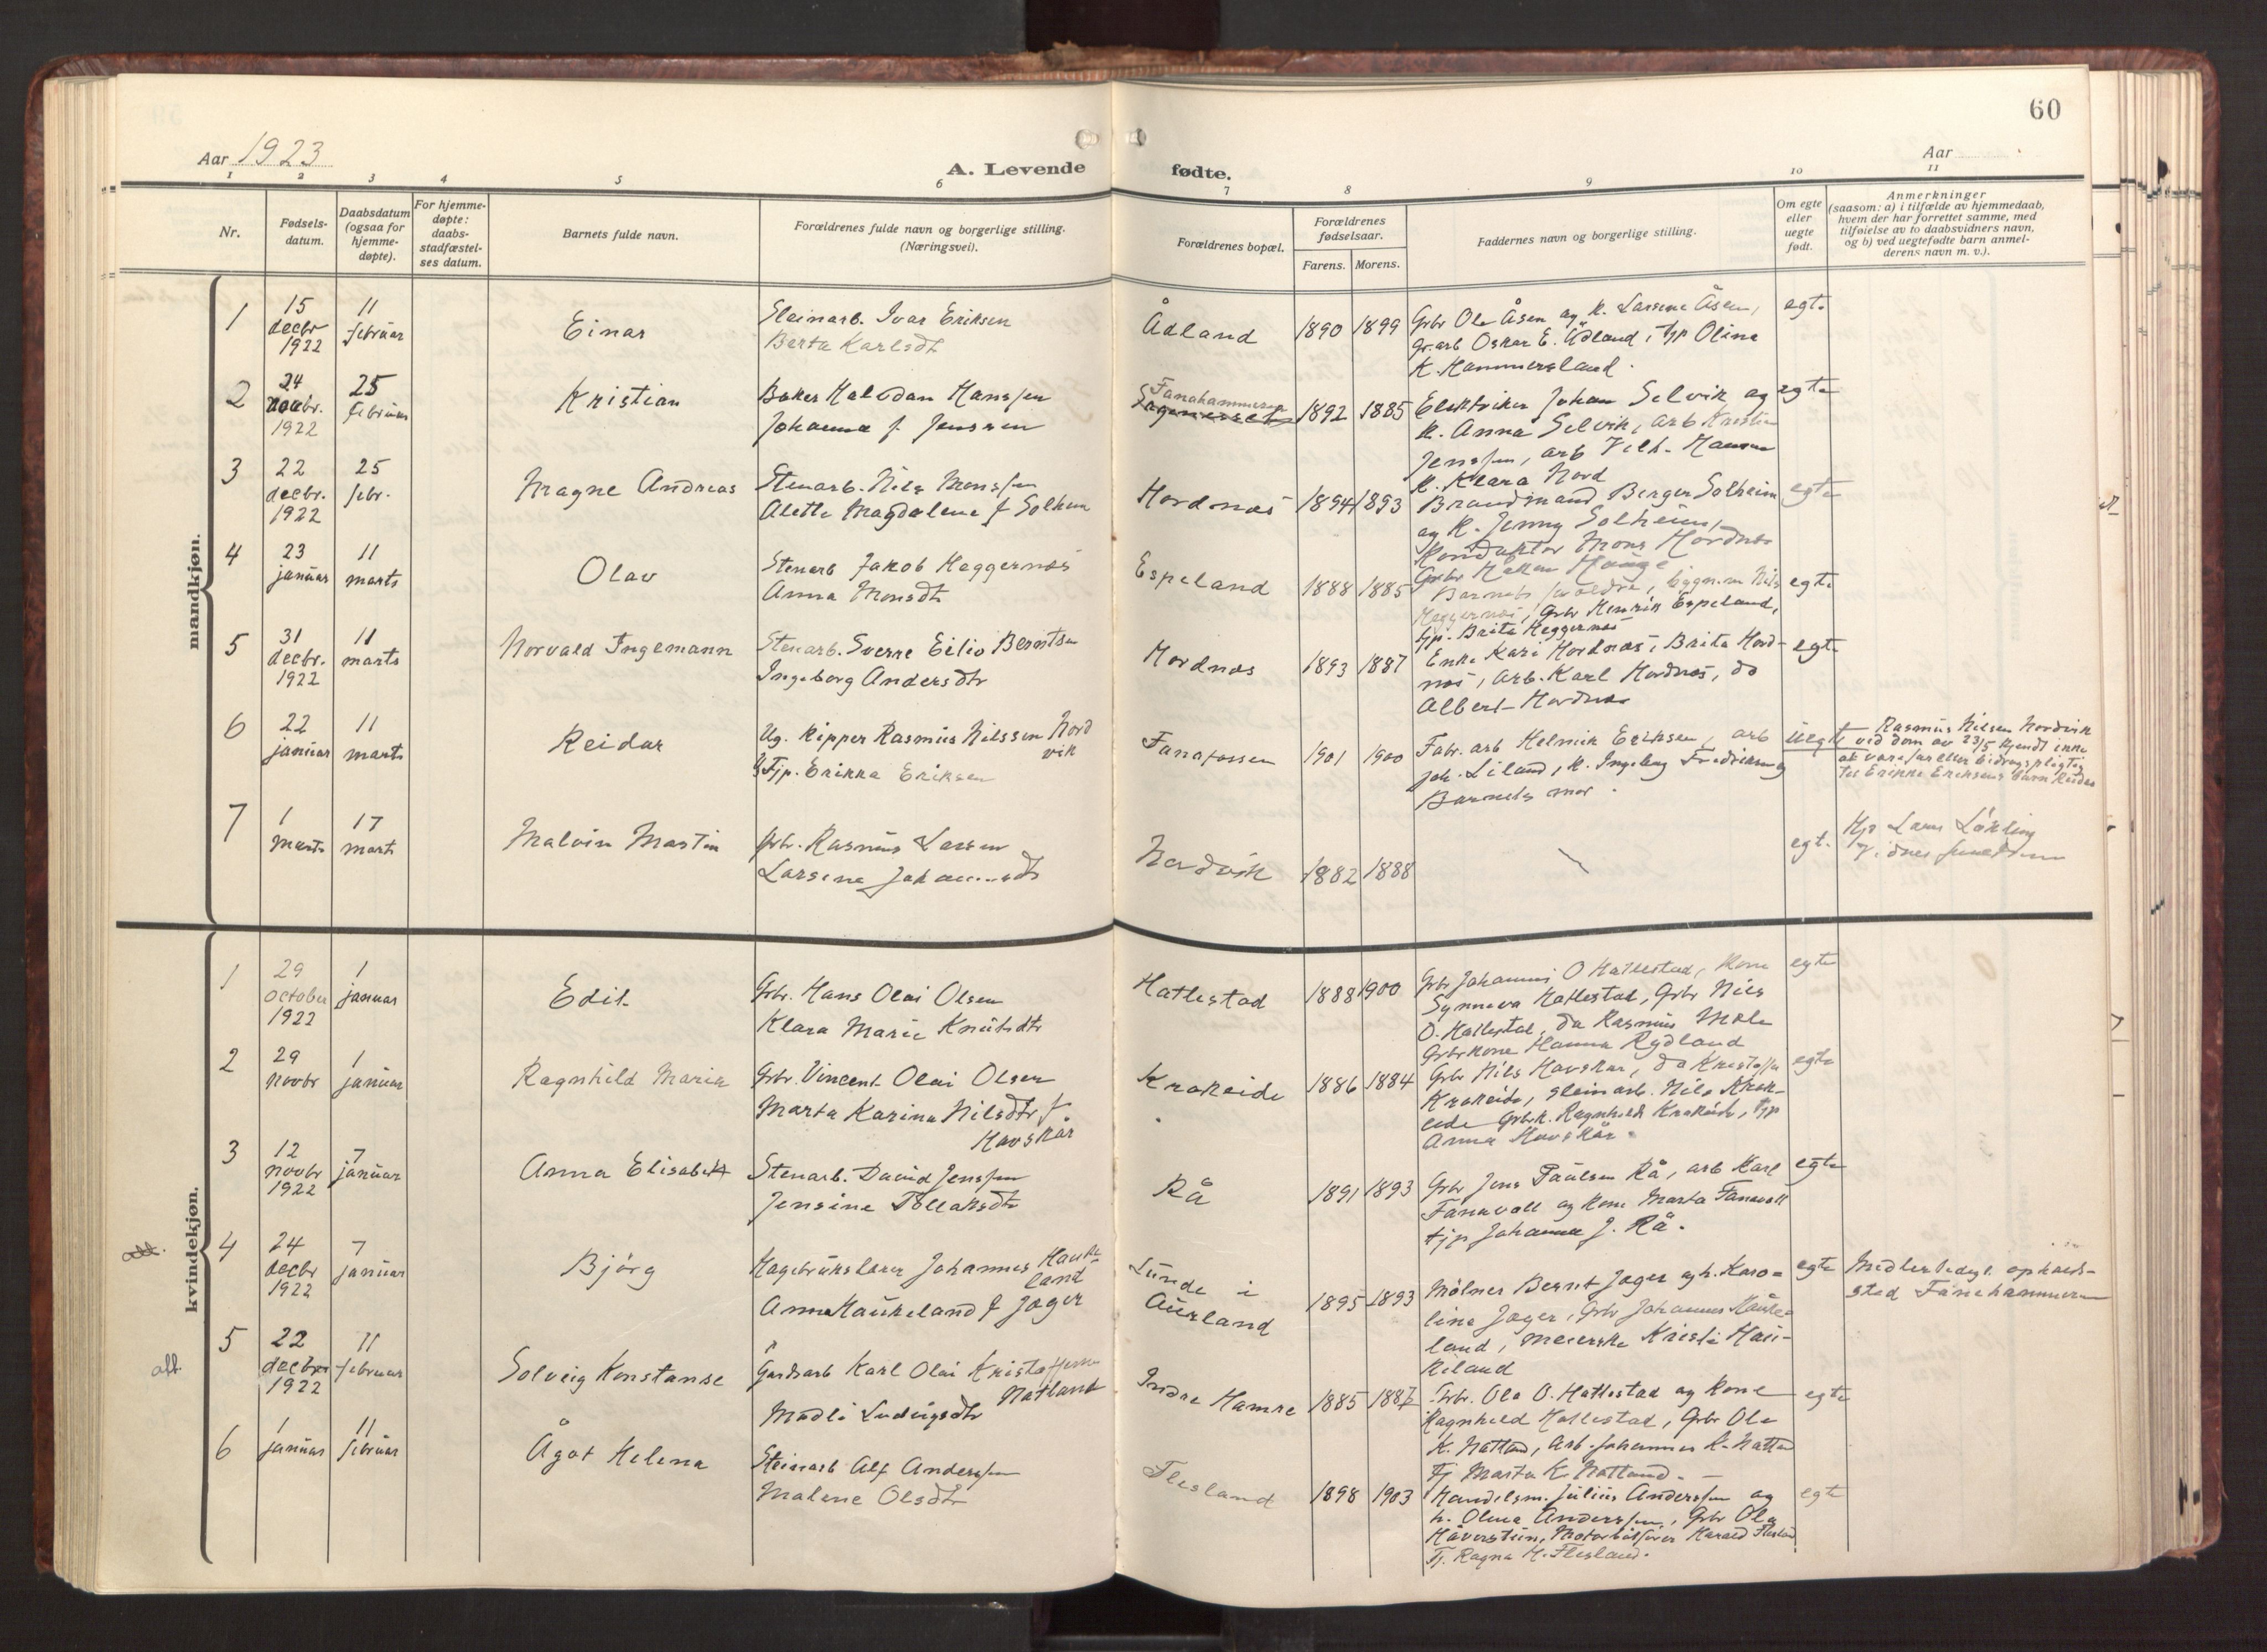 60
Aar 1923
A. Levende
fødte.
Aar
1 2 3 4 5 6 7 8 9 10 11
Nr.
Fødsels-
datum.
Daabsdatum
(ogsaa for
hjemme-
døpte).
For hjemme-
døpte:
daabs-
stadfæstel-
ses datum.
Barnets fulde navn.
Forældrenes fulde navn og borgerlige stilling.
(Næringsvei).
Forældrenes bopæl.
Forældrenes
fødselsaar.
Farens. Morens.
Faddernes navn og borgerlige stilling.
Om egte
eller
uegte
født.
Anmerkninger
(saasom: a) i tilfælde av hjemmedaab,
hvem der har forrettet samme, med
tilføielse av to daabsvidners navn,
og b) ved uegtefødte barn anmel-
derens navn m. v.).
mandkjøn.
1
15
decbr
1922
11
februar
Einar
Steinarb. Ivar Eriksen
Berta Karlsdt
Ådland
1890 1899
Grbr Ole Åsen og k. Larsine Åsen,
gr.arb Oskar E. Ådland, tjp Olina
K. Hammersland.
egte
2
24
decbr.
1922
25
februar
Kristian
Baker Halvdan Hanssen
Johanna f. Jenssen
Fanahammeren
1892 1885
Elektriker Johan Selvik og
k. Anna Selvik, arb Kristian
Jenssen, arb Vilh. Hansen
k. Klara Nord
egte
3
22
decbr.
1922
25
febr.
Magne Andreas
Stenarb. Nils Monssen
Alette Magdalene f Solheim
Hordnæs
1894 1893
Brandmand Berger Solheim
og k. Jenny Solheim,
Konduktør Mons Hordnæs
Grbr Håkon Hauge
egte
4
23
januar
11
marts
Olav
Stenarb Jakob Heggernæs
Anna Monsdt
Espeland
1888 1885
Barnets foreldre, bygn.m Nils
Heggernæs, Grbr Henrik Espeland,
tjp. Brita Heggernæs
egte
5
31
decbr.
1922
11
marts
Norvald Ingemann
Stenarb. Sverre Eilif Berntsen
Ingeborg Andersdtr
Hordnæs
1893 1887
Enke Kari Hordnæs, Brita Hord-
næs, arb. Karl Hordnæs, do
Albert Hordnæs
egte
6
22
januar
11
marts
Reidar
Ug. Kipper Rasmus Nilssen Nord
vik
Tjp. Erikka Eriksen
Fanafossen
1901 1900
Fabr. arb Helmik Eriksen, arb
Joh. Liland, k. Ingeborg Fredriksen og
Barnets mor.
uegte
Rasmus Nilsen Nordvik
ved dom av 23/5 kjendt ikke
at være far eller bidragspligtig
til Erikka Eriksens barn Reidar
7
1
marts
17
marts
Malvin Martin
Grbr. Rasmus Larsen
Larsina Johannesdt
Nordvik
1882 1888
egt.
Hjd Lars Løkling
kvindekjøn.
1
29
october
1922
1
januar
Edit
Grbr. Hans Olai Olsen
Klara Marie Knutsdtr
Hatlestad
1888 1900
Grbr Johannes O Hatlestad, kone
Synneva Hatlestad, Grbr Nils
O. Hatlestad, do Rasmus Mæle
Grbrkone Hanna Rydland
egte
2
29
novbr
1
januar
Ragnhild Maria
Grbr. Vincent Olai Olsen
Marta Karina Nilsdtr f
Havskår
Krokeide
1886 1884
Grbr Nils Havskår, do Kristoffer
Krokeide, steinarb. Nils Krok-
eide Grbrk. Ragnhild Krokeide, tjp
Anna Havskår.
egte
3
12
novbr
1922
7
januar
Anna Elisabeth
Stenarb. David Jenssen
Jensine Tollaksdtr
Rå
1891 1893
Grbr Jens Paulsen Rå, arb Karl
Fanavoll og kone Marta Fanavoll
tjp Johanna J. Rå.
egte
att.
4
24
decbr
1922
7
januar
Bjørg
Hagebrukslærer Johannes Hauke-
land
Anna Haukeland f Jæger
Lunde i
Aurland
1895 1893
Mølner Bernt Jæger og h. Karo-
line Jæger, Grbr Johannes Hauke-
land, meierske Kristi Hau-
keland
egte
Midlertidigt opholds-
sted Fanahammeren
att.
5
22
decbr
1922
11
februar
Solveig Konstanse
Gardsarb Karl Olai Kristoffersen
Natland
Madli Ludvigsdtr
Indre Hamre
1885 1887
Grbr. Ola O. Hatlestad og kone
Ragnhild Hatlestad, Grbr Ole
K. Natland, Arb. Johannes K. Natland
Tj Marta K. Natland.
egte
6
1
januar
11
februar
Ågot Helena
Steinarb Alf Anderssen
Malene Olsdtr
Flesland
1898 1903
Handelsm. Julius Anderssen og
h. Olena Anderssen, Grbr Ola
Håverstein, Motorbåtfører Harald Flesland
Tj. Ragna M. Flesland.
egte